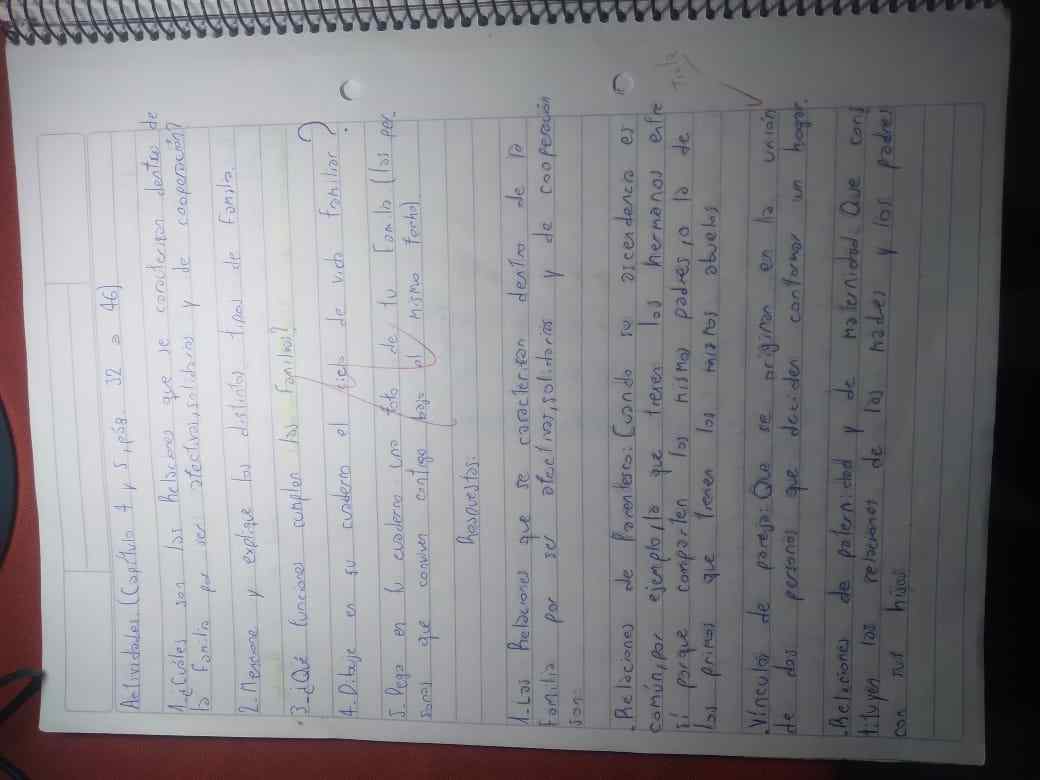 Actividades (Capítulo 4 y 5, pág. 32 a 46)
1. ¿Cuáles son las Relaciones que se caracterizan dentro de
la Familia por ser: afectivas, solidarias y de cooperación?
2. Mencione y explique los distintos tipos de Familia.
3. ¿Qué Funciones cumplen las Familias?
4. Dibuje en su cuaderno el ciclo de vida familiar.
5. Pega en tu cuaderno una foto de tu Familia (las per-
sonas que conviven contigo bajo el mismo techo)
Respuestas:
1. Las Relaciones que se caracterizan dentro de la
Familia por ser afectivas, solidarias y de cooperación
son:
. Relaciones de Parentesco: Cuando su ascendencia es
común, por ejemplo, la que tienen los hermanos entre
sí porque comparten los mismos padres, o la de
los primos que tienen los mismos abuelos
. Vínculos de pareja: Que se originan en la unión
de dos personas que deciden conformar un hogar.
. Relaciones de paternidad y de maternidad: Que cons
tituyen las relaciones de las madres y los padres
con sus hijos